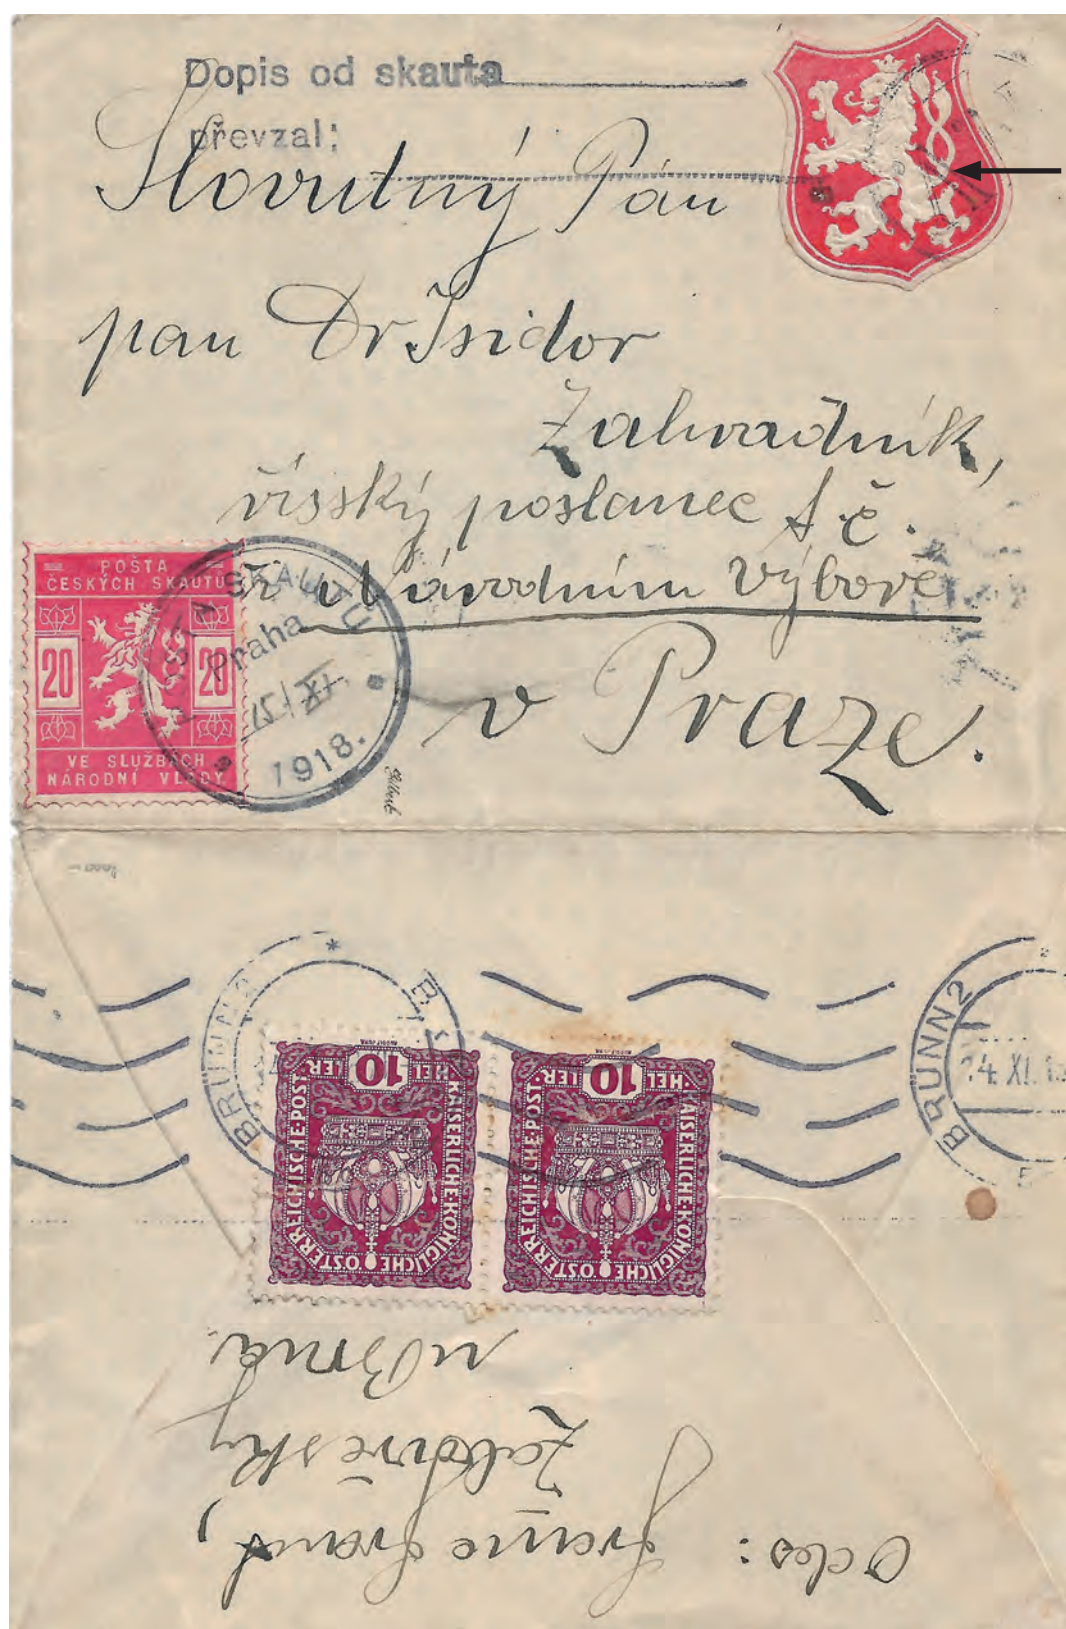 Dopis od skauta
převzal:
Slovutný Pán
pan Dr Isidor
Zahradník,
říšský poslanec t. č.
při Národním Výboře
v Praze.
POŠTA
ČESKÝCH SKAUTŮ
20 20
VE SLUŽBÁCH
NÁRODNÍ VLÁDY
POŠTA SKAUTŮ
Praha
15/XI.
1918.
Gilbert
BRÜNN 2
BRÜNN 2
24. XI. 18
5
KAISERLICHE·KÖNIGLICHE ÖSTERREICHISCHE·POST·
10
HELLER
KAISERLICHE·KÖNIGLICHE ÖSTERREICHISCHE·POST·
10
HELLER
Odes:
Žabovřesky
u Brna.